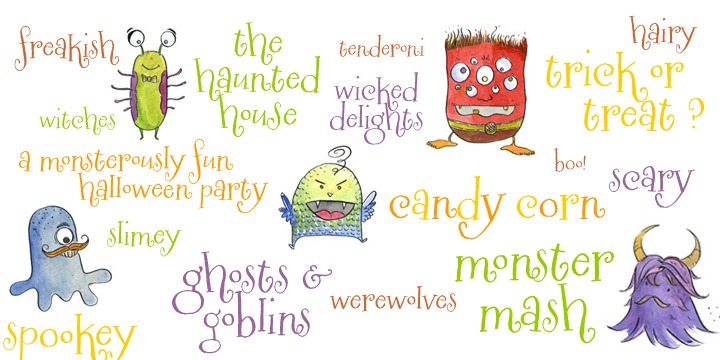 freakish
the
haunted
house
tenderoni
hairy
wicked
delights
trick or
treat ?
witches
a monsterously fun
halloween party
boo!
scary
candy corn
slimey
ghosts &
goblins
werewolves
monster
mash
spookey